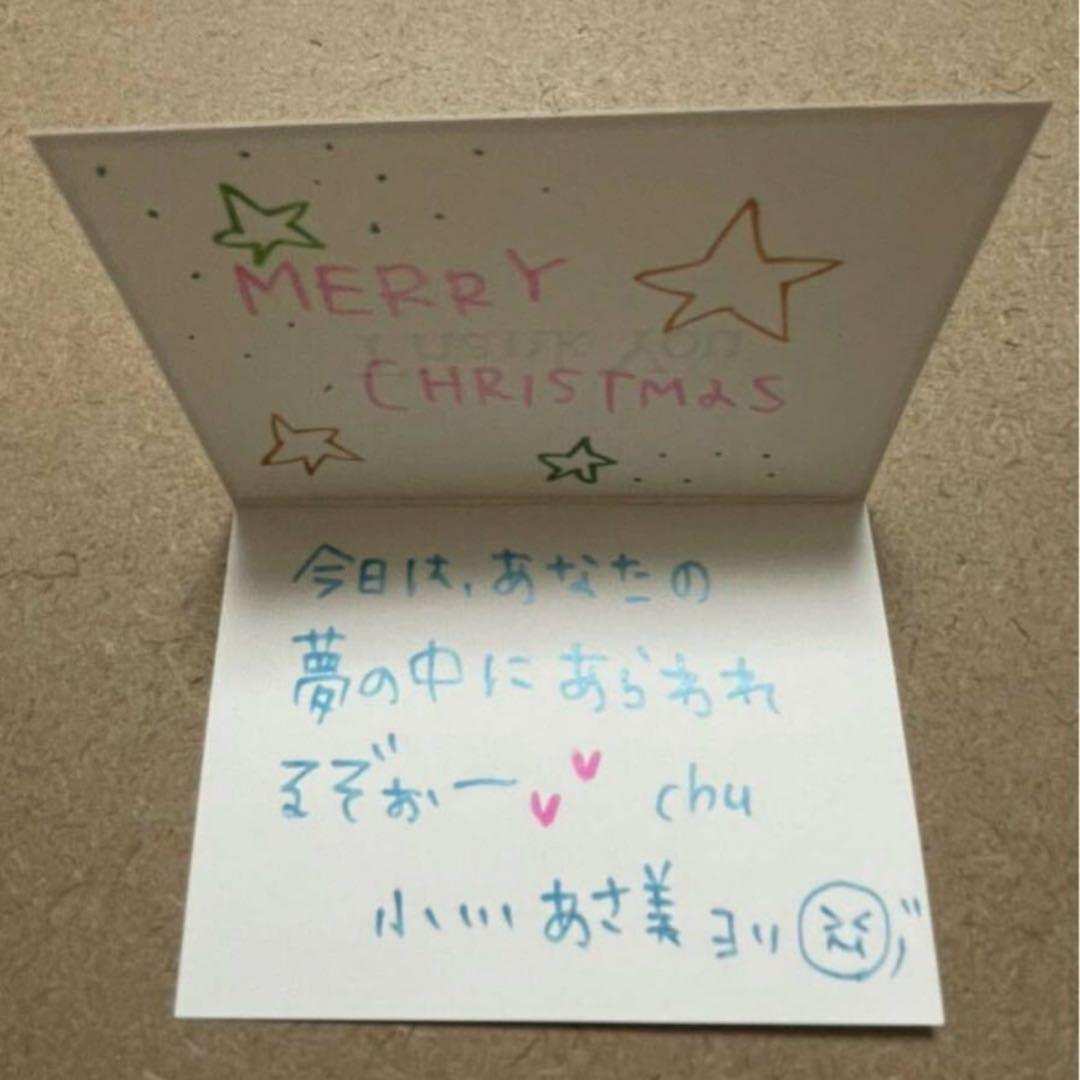 MERRY
Thank You
CHRISTMAS
今日は、あなたの
夢の中にあらわれ
るぞぉー chu
小川あさ美ヨリ